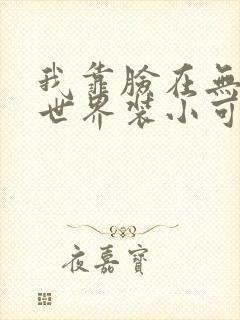 我靠臉在無
世界裝小可
夜嘉寶